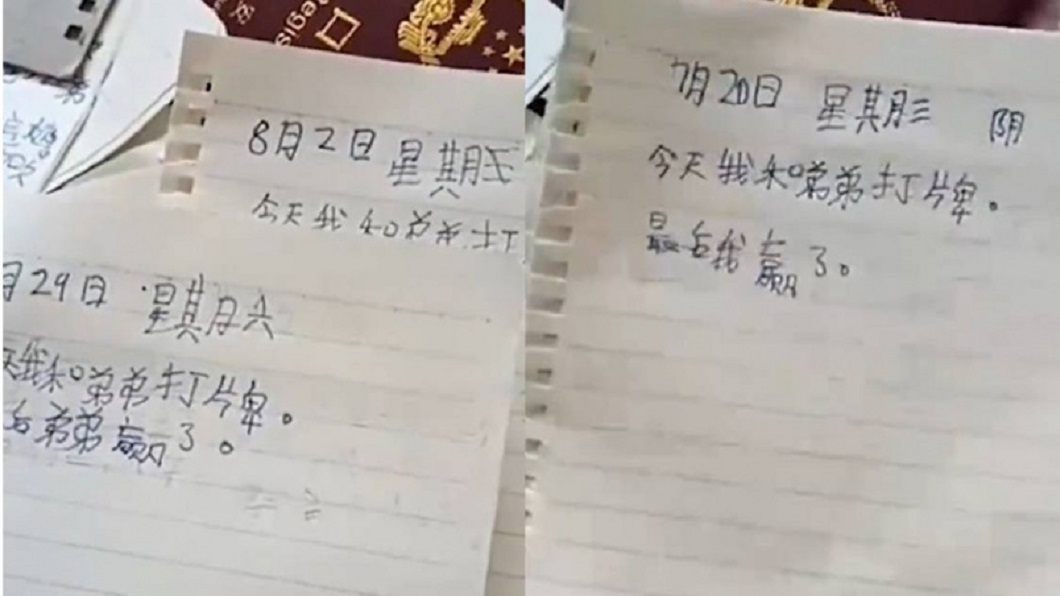 8月2日 星期三
今天我和弟弟打
月29日 星期六
天我和弟弟打牌。
后弟弟赢了。
7月20日 星期三 阴
今天我和弟弟打牌。
最后我赢了。